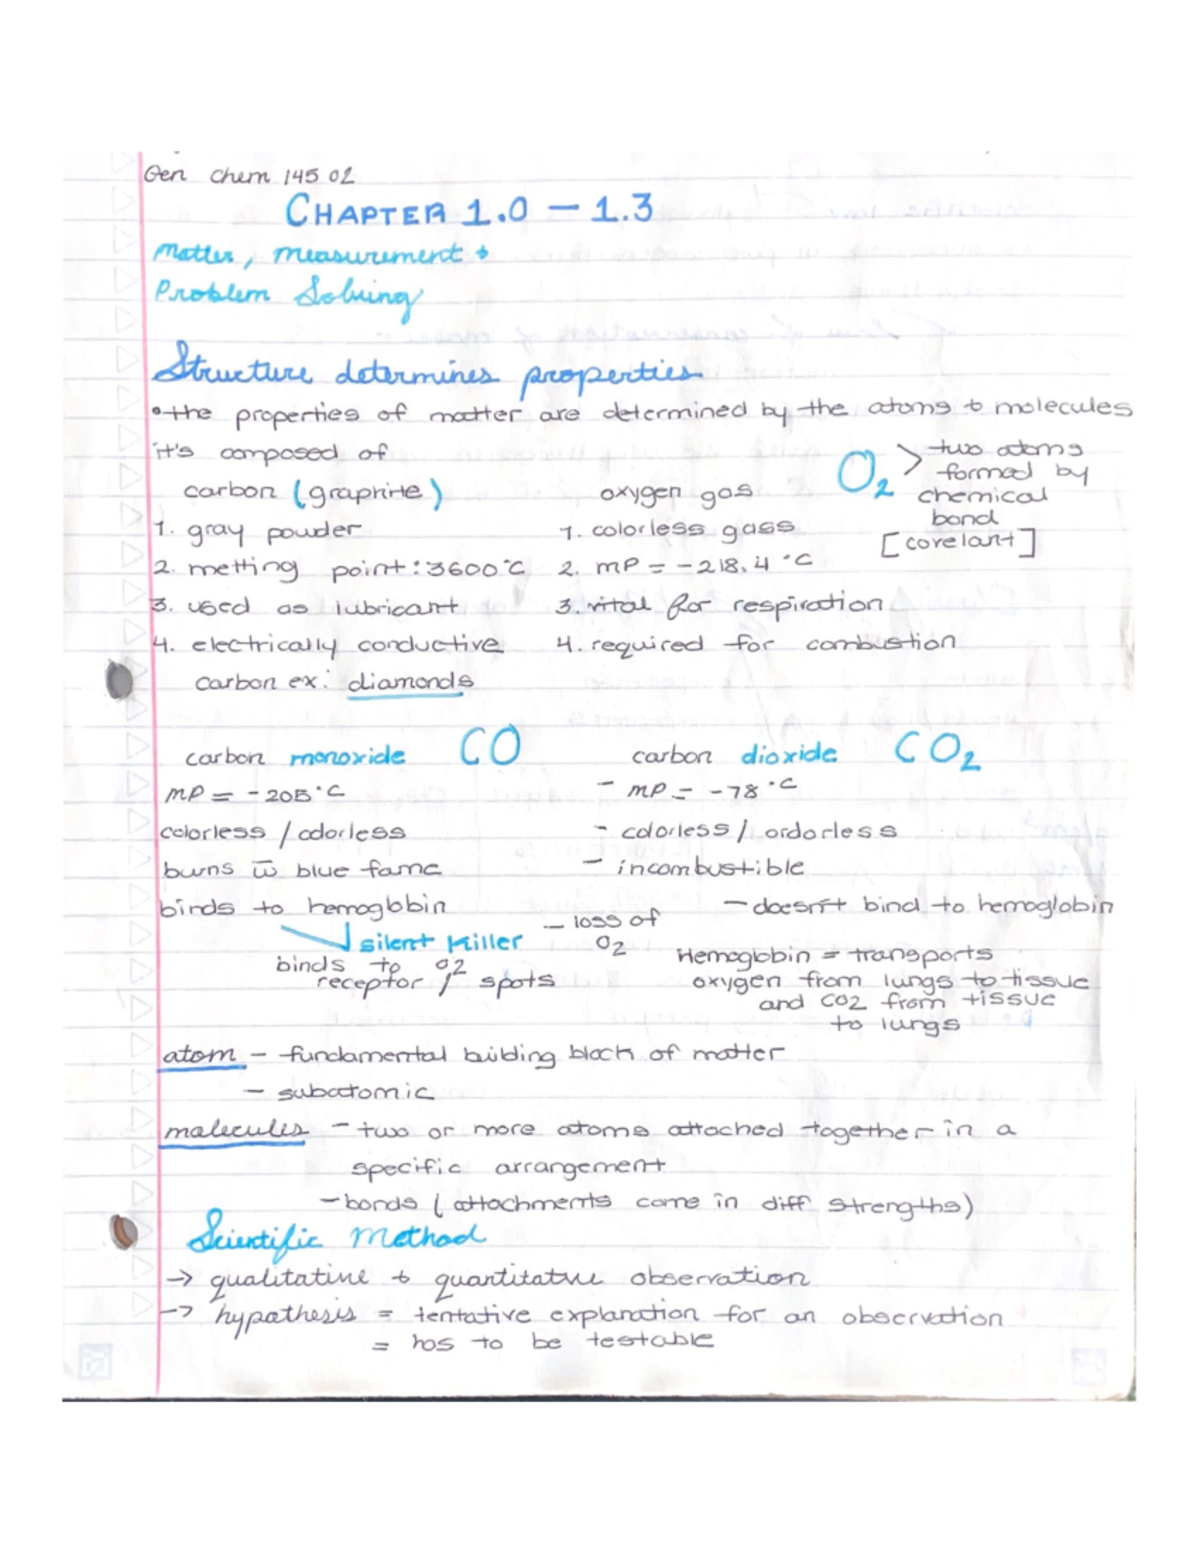 Gen Chem 145 02
CHAPTER 1.0 – 1.3
Matter, measurement &
Problem Solving
Structure determines properties
• the properties of matter are determined by the atoms & molecules
it's composed of
carbon (graphite)
1. gray powder
2. metting point: 3600°C
3. used as lubricant
4. electrically conductive
carbon ex: diamonds
oxygen gas
1. colorless gass
2. mP = -218.4 °C
3. vital for respiration
4. required for combustion
O2 > two atoms
formed by
chemical
bond
[covelant]
carbon monoxide CO
MP = -205°C
colorless / odorless
burns w̅ blue fame
binds to hemoglobin
silent killer
binds to O2
receptor / spots
– loss of
O2
carbon dioxide CO2
– MP = -78°C
– colorless / ordorless
– incombustible
– doesn't bind to hemoglobin
Hemoglobin = transports
oxygen from lungs to tissue
and CO2 from tissue
to lungs
atom – fundamental building block of matter
– subatomic
malecules – two or more atoms attached together in a
specific arrangement
– bonds (attachments come in diff strengths)
Scientific Method
→ qualitative & quantitative observation
→ hypothesis = tentative explanation for an observation
= has to be testable